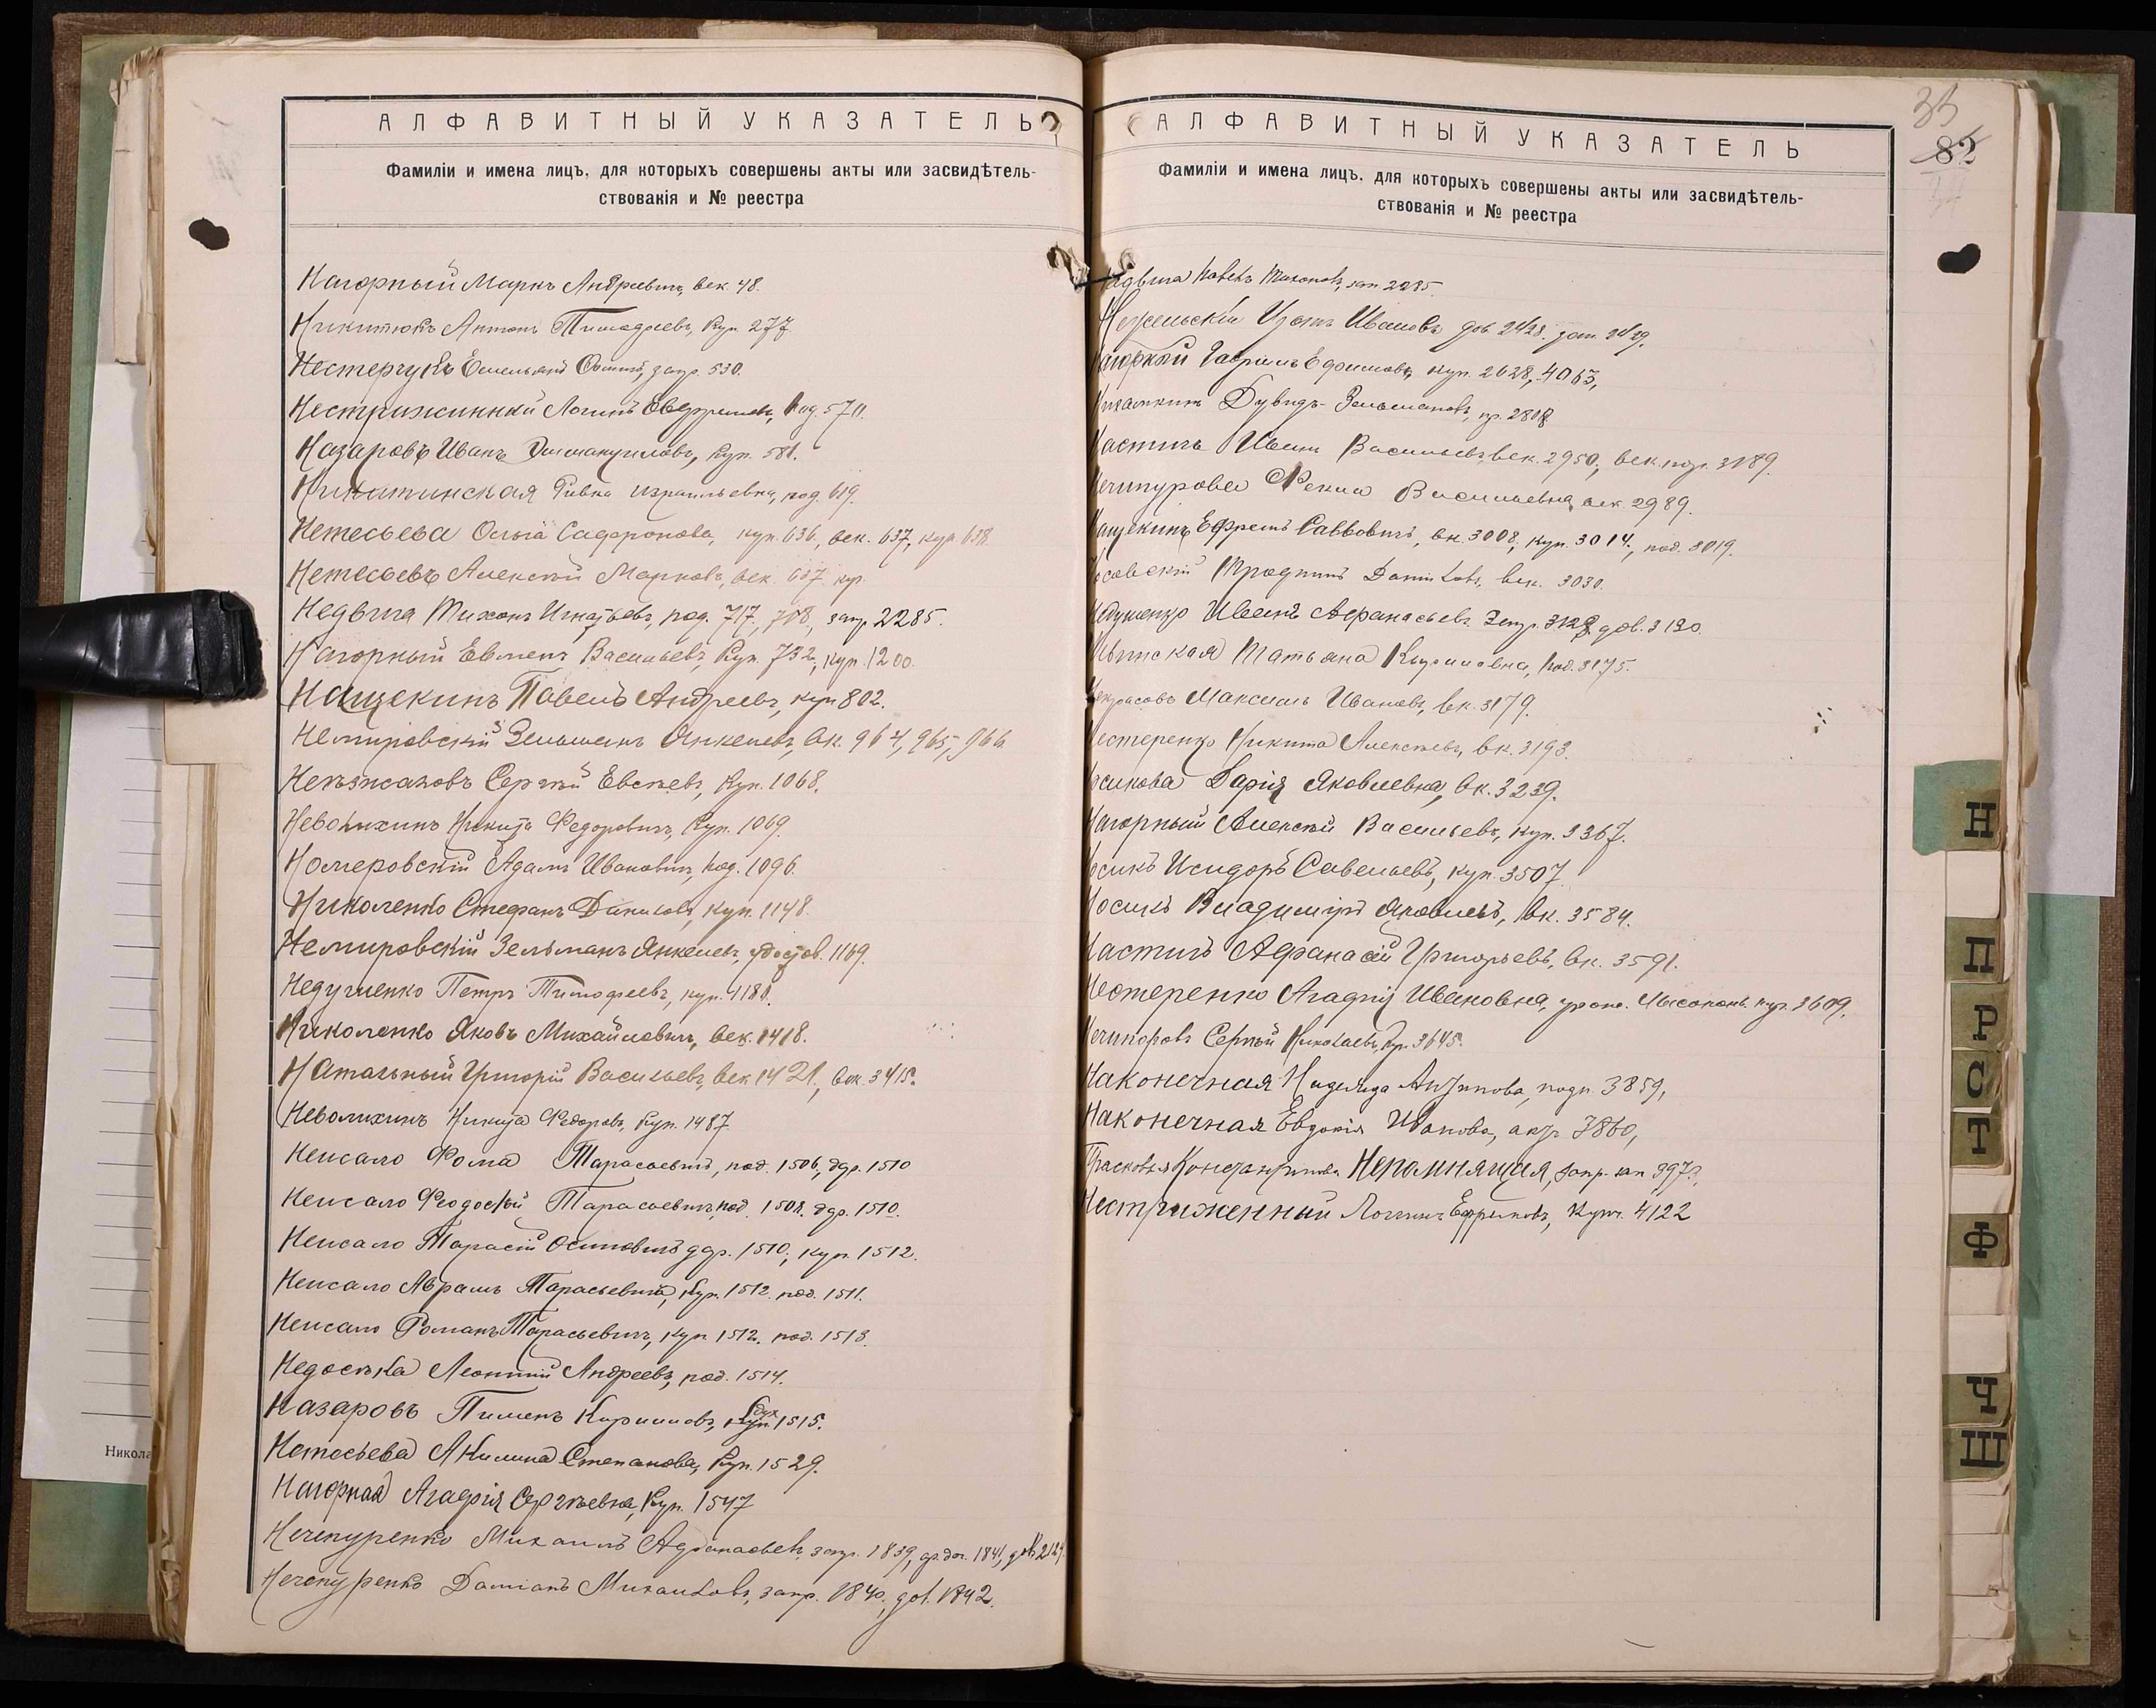 АЛФАВИТНЫЙ УКАЗАТЕЛЬ
Фамиліи и имена лицъ, для которыхъ совершены акты или засвидѣтель-
ствованія и № реестра
Нагорный Маркъ Андреевичъ, век. 48.
Никитюкъ Антонъ куп. 277
Нестерчукъ Емельянъ запр. 530.
Нестрижинный Логинъ под. 570.
Назаровъ Иванъ куп. 581.
Ривка Израильевна, под. 619.
Нетесьева Ольга куп. 636, век. 637, куп. 638.
Нетесьевъ Алексѣй Марковъ, век. 637. кур.
Недвига Тихонъ Игнатьевъ, под. 717, 708, запр. 2285.
Нагорный Евменъ Васильевъ, куп. 732, куп. 1200.
Нащекинъ Павелъ Андреевъ, куп. 802.
Немировскій Зельманъ Янкелевъ, вк. 964, 965, 966
Сергѣй Евсѣевъ, куп. 1068.
Неволихинъ Никита Федоровичъ, куп. 1069.
Номеровскій Адамъ Ивановичъ, под. 1096.
Николенко Стефанъ Даниловъ, куп. 1148.
Немировскій Зельманъ Янкелевъ, удостов. 1169.
Петръ Тимофеевъ, куп. 1180.
Николенко Яковъ Михайловичъ, век. 1418.
Григорій Васильевъ, век 1421, век. 3415.
Неволихинъ Никита Федоровъ, куп. 1487
Неисало Фома Тарасьевичъ, под. 1506, ддр. 1510
Неисало Феодосій Тарасьевичъ, под. 1508. ддр. 1510.
Неисало Тарасій Осиповичъ ддр. 1510, куп. 1512.
Неисало Абрамъ Тарасьевичъ, куп. 1512. под. 1511.
Неисало Романъ Тарасьевичъ, куп. 1512. под. 1513.
Недосѣка Леонтій Андреевъ, под. 1514.
Назаровъ Пименъ Кирилловъ, 1515.
Нетесьева Акилина Степанова, куп. 1529.
Нагорная Агафія Сергѣевна, куп. 1547
Нечепуренко Михаилъ запр. 1839, 1841,
Нечепуренко Даміанъ Михаиловъ, запр. 1840, дов. 1842.
Никола
АЛФАВИТНЫЙ УКАЗАТЕЛЬ
Фамиліи и имена лицъ, для которыхъ совершены акты или засвидѣтель-
ствованія и № реестра
82
Недвига Павелъ Тихоновъ, зап. 2285.
Ивановъ дов. 2428. 2429.
Нагорный Гавріилъ Ефимовъ, куп. 2628, 4063,
Дувидъ Зельмановъ, пр. 2808
Настичъ Иванъ Васильевъ, век. 2950, 3189.
Васильевна, век. 2989.
Нащекинъ Ефремъ Саввовичъ, вк. 3008, куп. 3014, под. 3019.
Даниловъ, век. 3030.
Иванъ Афанасьевъ дов. 3130.
Татьяна Кирилловна, под. 3175.
Некрасовъ Максимъ Ивановъ, вк. 3179.
Нестеренко Никита Алексѣевъ, вк. 3193.
Носикова Дарія Яковлевна, вк. 3239.
Нагорный Алексѣй Васильевъ, куп. 3367.
Носикъ Исидоръ Савельевъ, куп. 3507
Носикъ Владиміръ Яковлевъ, вк. 3584.
Настичъ Афанасій Григорьевъ, вк. 3591.
Нестеренко Агафія Ивановна, 3609.
Нечипоровъ Сергѣй Николаевъ, куп. 3645.
Наконечная Надежда Антипова, подп. 3859,
Наконечная Евдокія Иванова, 3860,
Прасковья Константинова Непомнящая,
Нестриженный Логинъ Ефремовъ, купч. 4122
Н
П
Р
С
Т
Ф
Ч
Ш